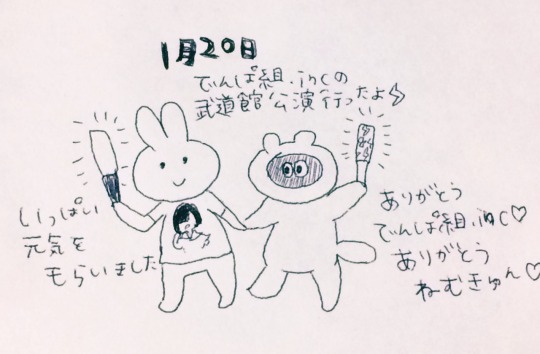 1月20日
でんぱ組.incの
武道館公演行ったよ
いっぱい
元気を
もらいました
ありがとう
でんぱ組.inc♡
ありがとう
ねむきゅん♡